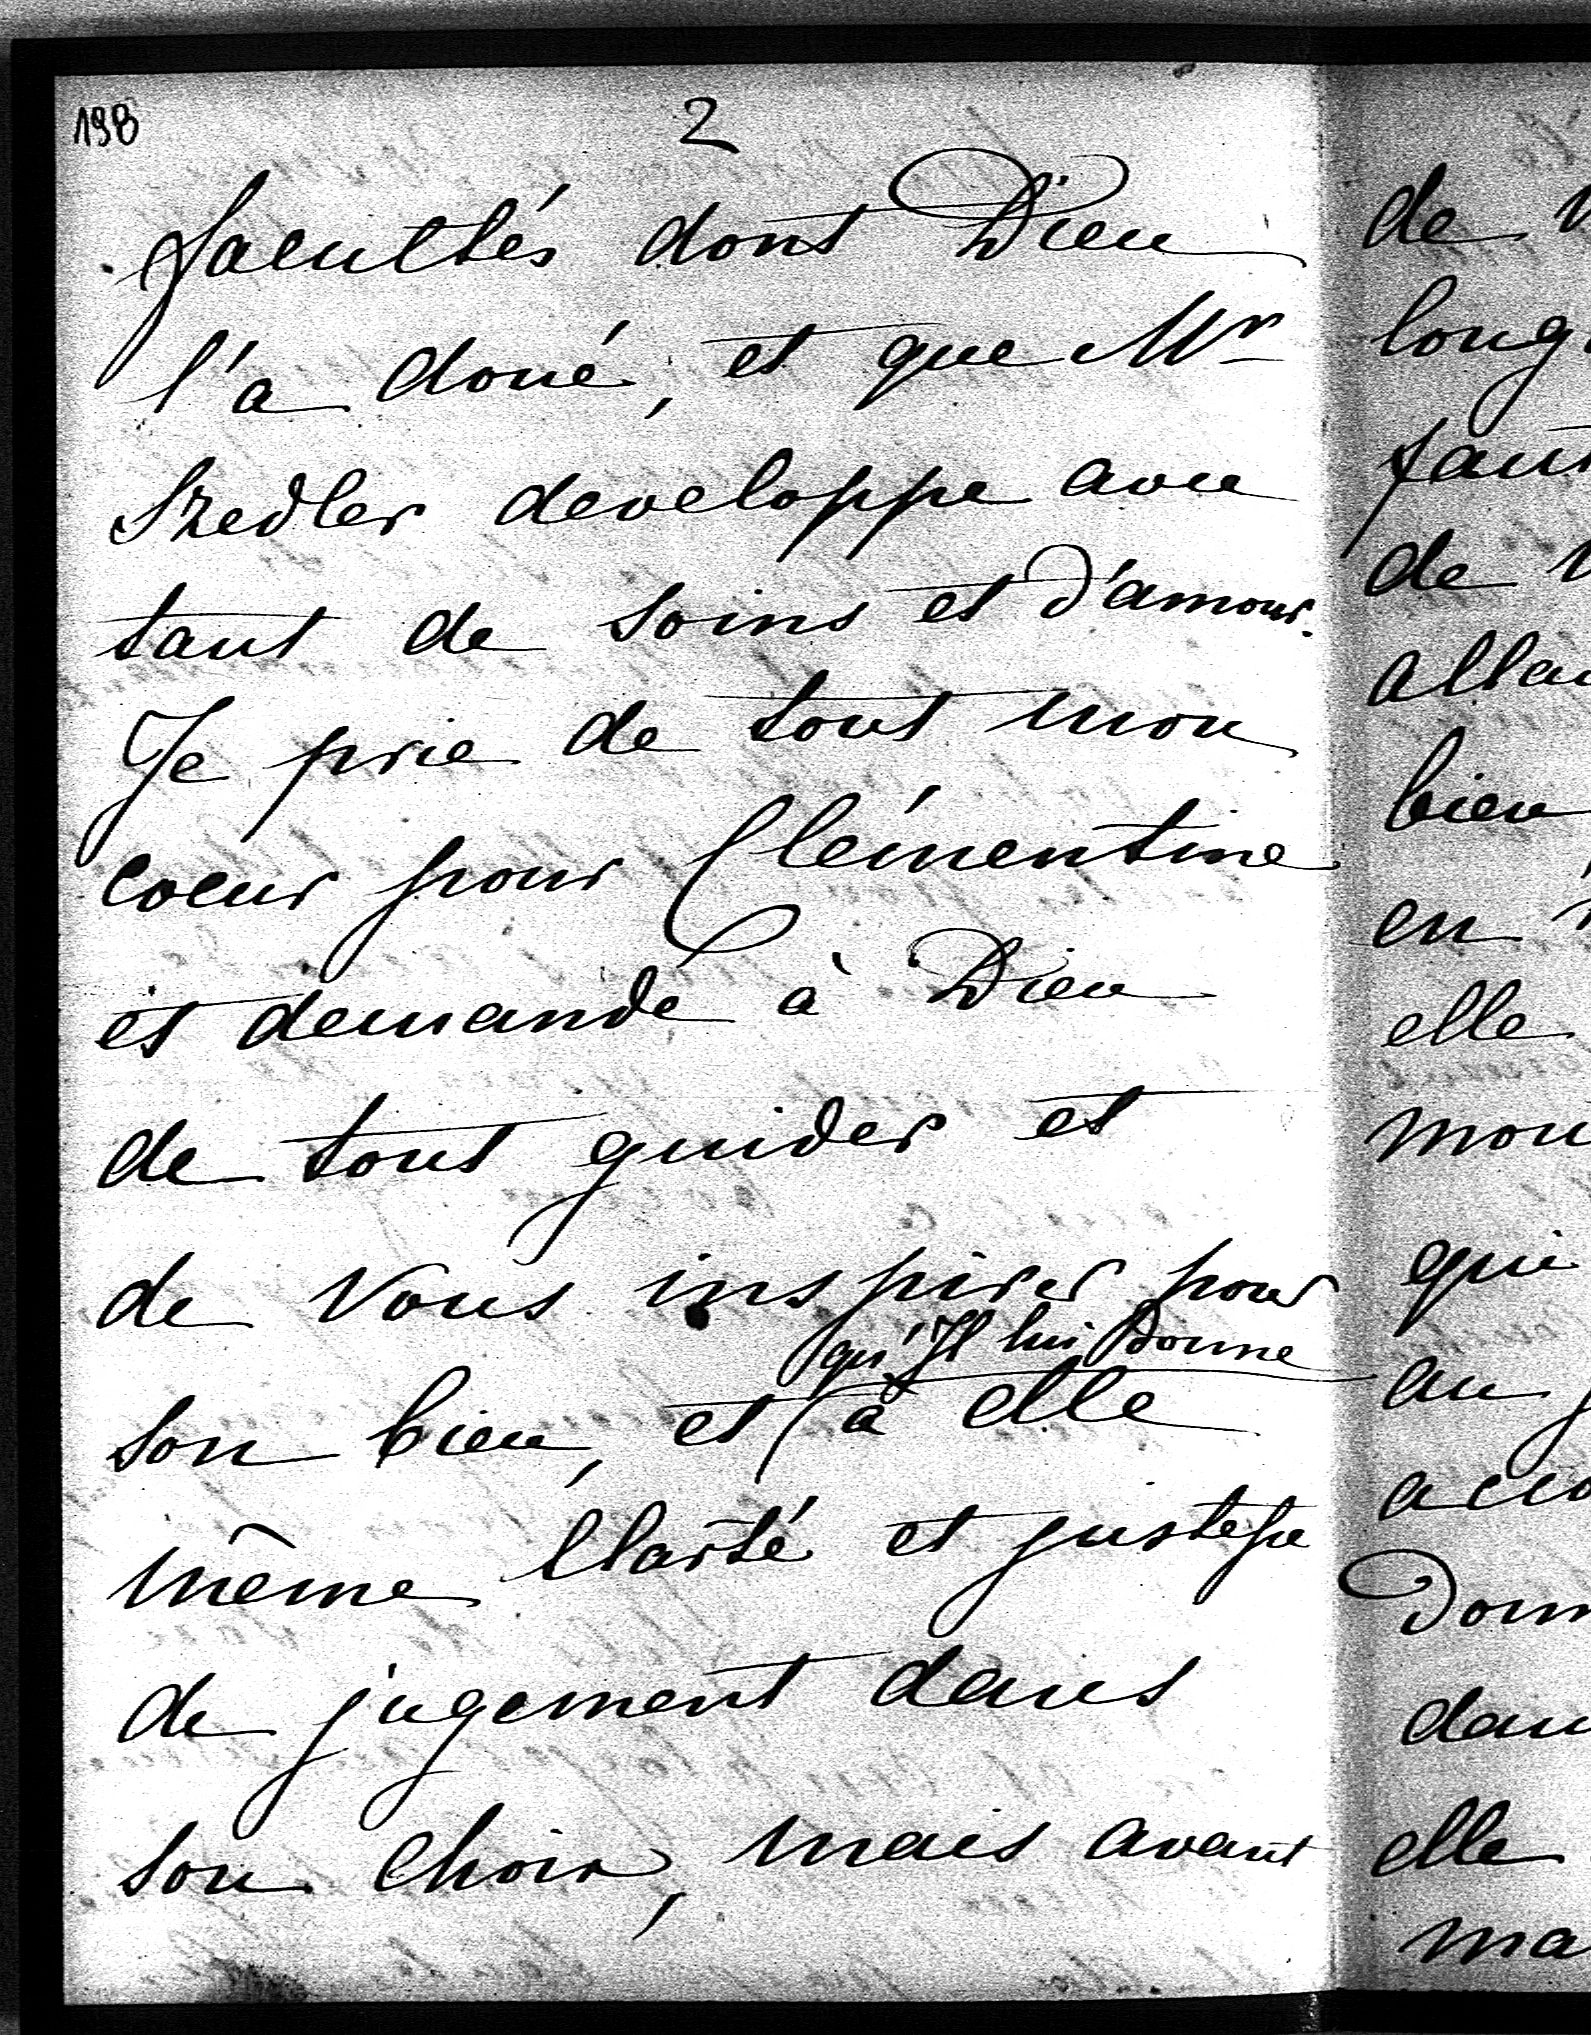 198
2
facultés dont Dieu
l'a doué, et que Mr
Szedler developpe avec
tant de soins et d'amour.
Je prie de tout mon
coeur pour Clémentine
et demande à Dieu
de tout guider et
de Vous inspirer pour
qu'Il lui donne
son bien, et à elle
même Clarté et justesse
de jugement dans
son choix, mais avant
de
long
faut
de
allai
bien
en
elle
mon
qui
au
acco
donn
dan
elle
ma